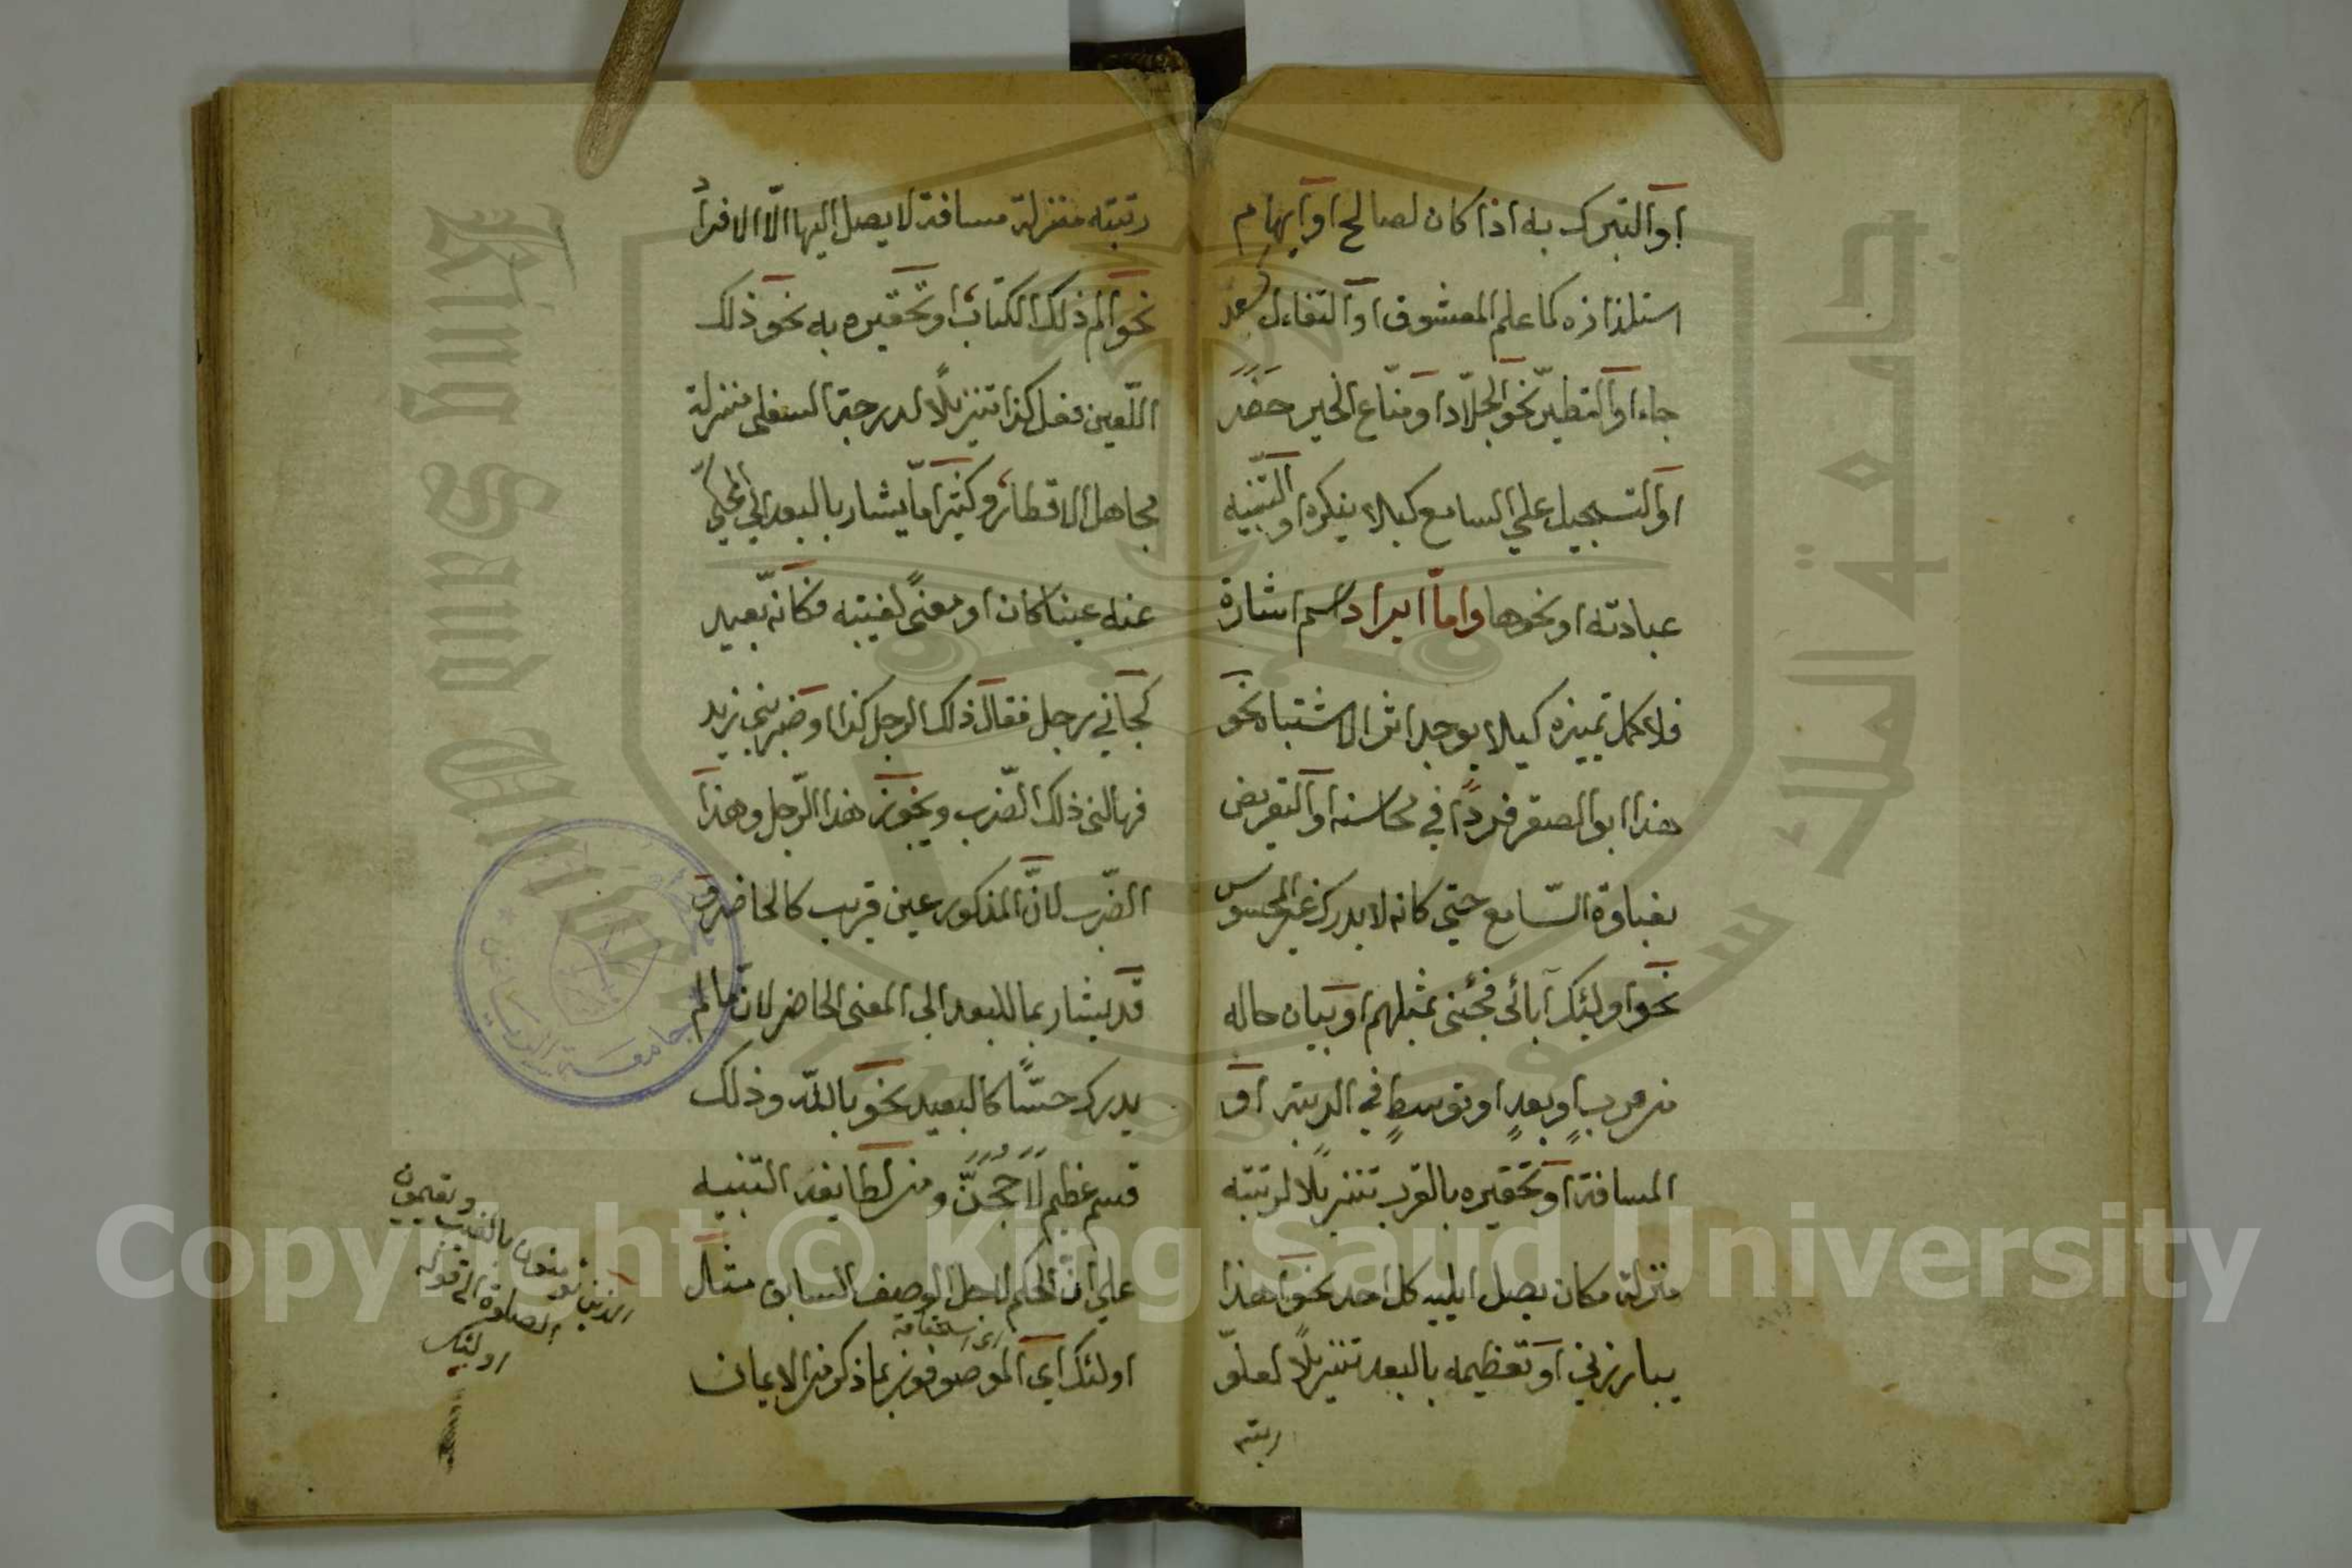 او التبرك به اذا كان لصالح او ايهام
استلذاذه كما علم المعشوق او التفاءل كسعد
جاء او التطير نحو الجلّاد او منّاع الخير حضر
او التسجيل علي السامع كيلا ينكره او التنبيه
عبادته او نحوها وامّا ايراد اسم اشارة
فلاكمل تمييزه كيلا يوجد اثر الاشتباه نحو
هذا ابو الصقر فردًا في محاسنه او التعريض
بغباوة السّامع حتي كانه لا يدرك غير المحسوس
نحو اولئك آبائى فجئنى بمثلهم او بيان حاله
من قربٍ او بعدٍ او توسطٍ في الرتبة او
المسافة او تحقيره بالقرب تنزيلًا لرتبته
منزلة مكان يصل اليه كل احد نحو اهذا
يبارزني او تعظيمه بالبعد تنزيلًا لعلوّ
رتبته
رتبته منزلة مسافة لا يصل اليها الّا الافراد
نحو الم ذلك الكتاب او تحقيره به نحو ذلك
اللّعين فعل كذا تنزيلًا لدرجته السفلى منزلة
مجاهل الاقطار وكثيرا مّا يشار بالبعد الي المحكيّ
عنه عينا كان او معنىً لغيبته فكانه بعيد
كجاني رجل فقال ذلك الرجل كذا او ضربني زيد
فهالني ذلك الضّرب ويجوز هذا الرّجل وهذا
الضّرب لانّ المذكور عين قريب كالحاضر و
قد يشار بما للبعد الى المعنى الحاضر لان ما لم
يدرك حسًّا كالبعيد نحو بالله وذلك
قسم عظيم لا و من لطايفه التنبيه
علي انّ الحكم لاجل الوصف السابق مثال
اولئك اي الموصوفون بما ذكر من الايمان
الذين يؤمنون بالغيب ويقيمون
الصلوة الى قوله
اولئك
جامعة الرياض
King Saud University
جامعة الملك سعود
1957
Copyright © King Saud University